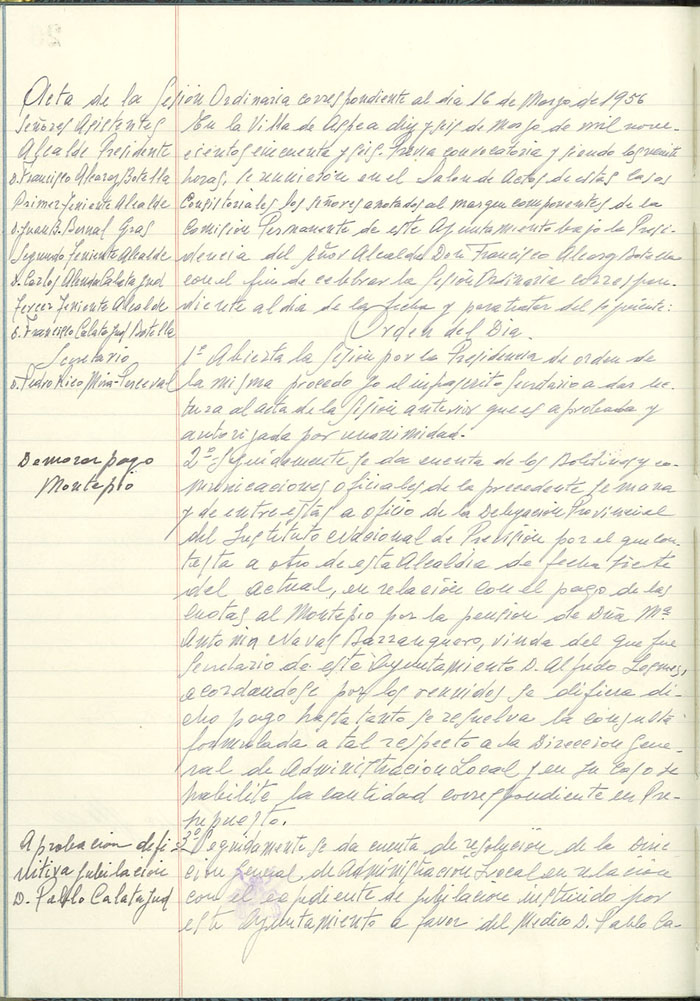 Acta de la Sesión Ordinaria correspondiente al dia 16 de Marzo de 1956
Señores Asistentes
Alcalde Presidente
D. Francisco Alcaraz Botella
Primer Teniente Alcalde
D. Juan B. Bernal Gras
Segundo Teniente Alcalde
D. Carlos Calatayud
Tercer Teniente Alcalde
D. Francisco Calatayud Botella
Secretario
D. Pedro Rico Mira-Perceval
En la Villa de Aspe a diez y seis de Marzo de mil nove-
cientos cincuenta y seis. Previa convocatoria y siendo las veinte
horas, se reunieron en el Salon de Actos de estas Casas
Consistoriales los señores anotados al margen componentes de la
Comision Permanente de este Ayuntamiento bajo la Presi-
dencia del señor Alcalde Don Francisco Alcaraz Botella
con el fin de celebrar la Sesión Ordinaria correspon-
diente al dia de la fecha y para tratar del siguiente:
Orden del Dia
1º Abierta la Sesión por la Presidencia de orden de
la misma procedo yo el infrascrito Secretario a dar lec-
tura al acta de la Sesión anterior que es aprobada y
autorizada por unanimidad.
Demorar pago
Montepio
2º Seguidamente se da cuenta de los Boletines y co-
municaciones oficiales de la precedente semana
y de entre estas a oficio de la Delegación Provincial
del Instituto Nacional de Previsión por el que con-
testa a otro de esta Alcaldia de fecha siete
del actual, en relación con el pago de las
cuotas al Montepio por la pension de Dña Mª
Antonia Navas Barranquero, viuda del que fue
Secretario de este Ayuntamiento D. Alfredo
acordandose por los reunidos se difiera di-
cho pago hasta tanto se resuelva la consulta
formulada a tal respecto a la Direccion Gene-
ral de Administracion Local y en su caso se
habilite la cantidad correspondiente en Pre-
supuesto.
Aprobación defi-
nitiva jubilación
D. Pablo Calatayud
3º Seguidamente se da cuenta de resolución de la Direc-
ción General de Administracion Local en relación
con el expediente de jubilación instruido por
este Ayuntamiento a favor del Medico D. Pablo Ca-